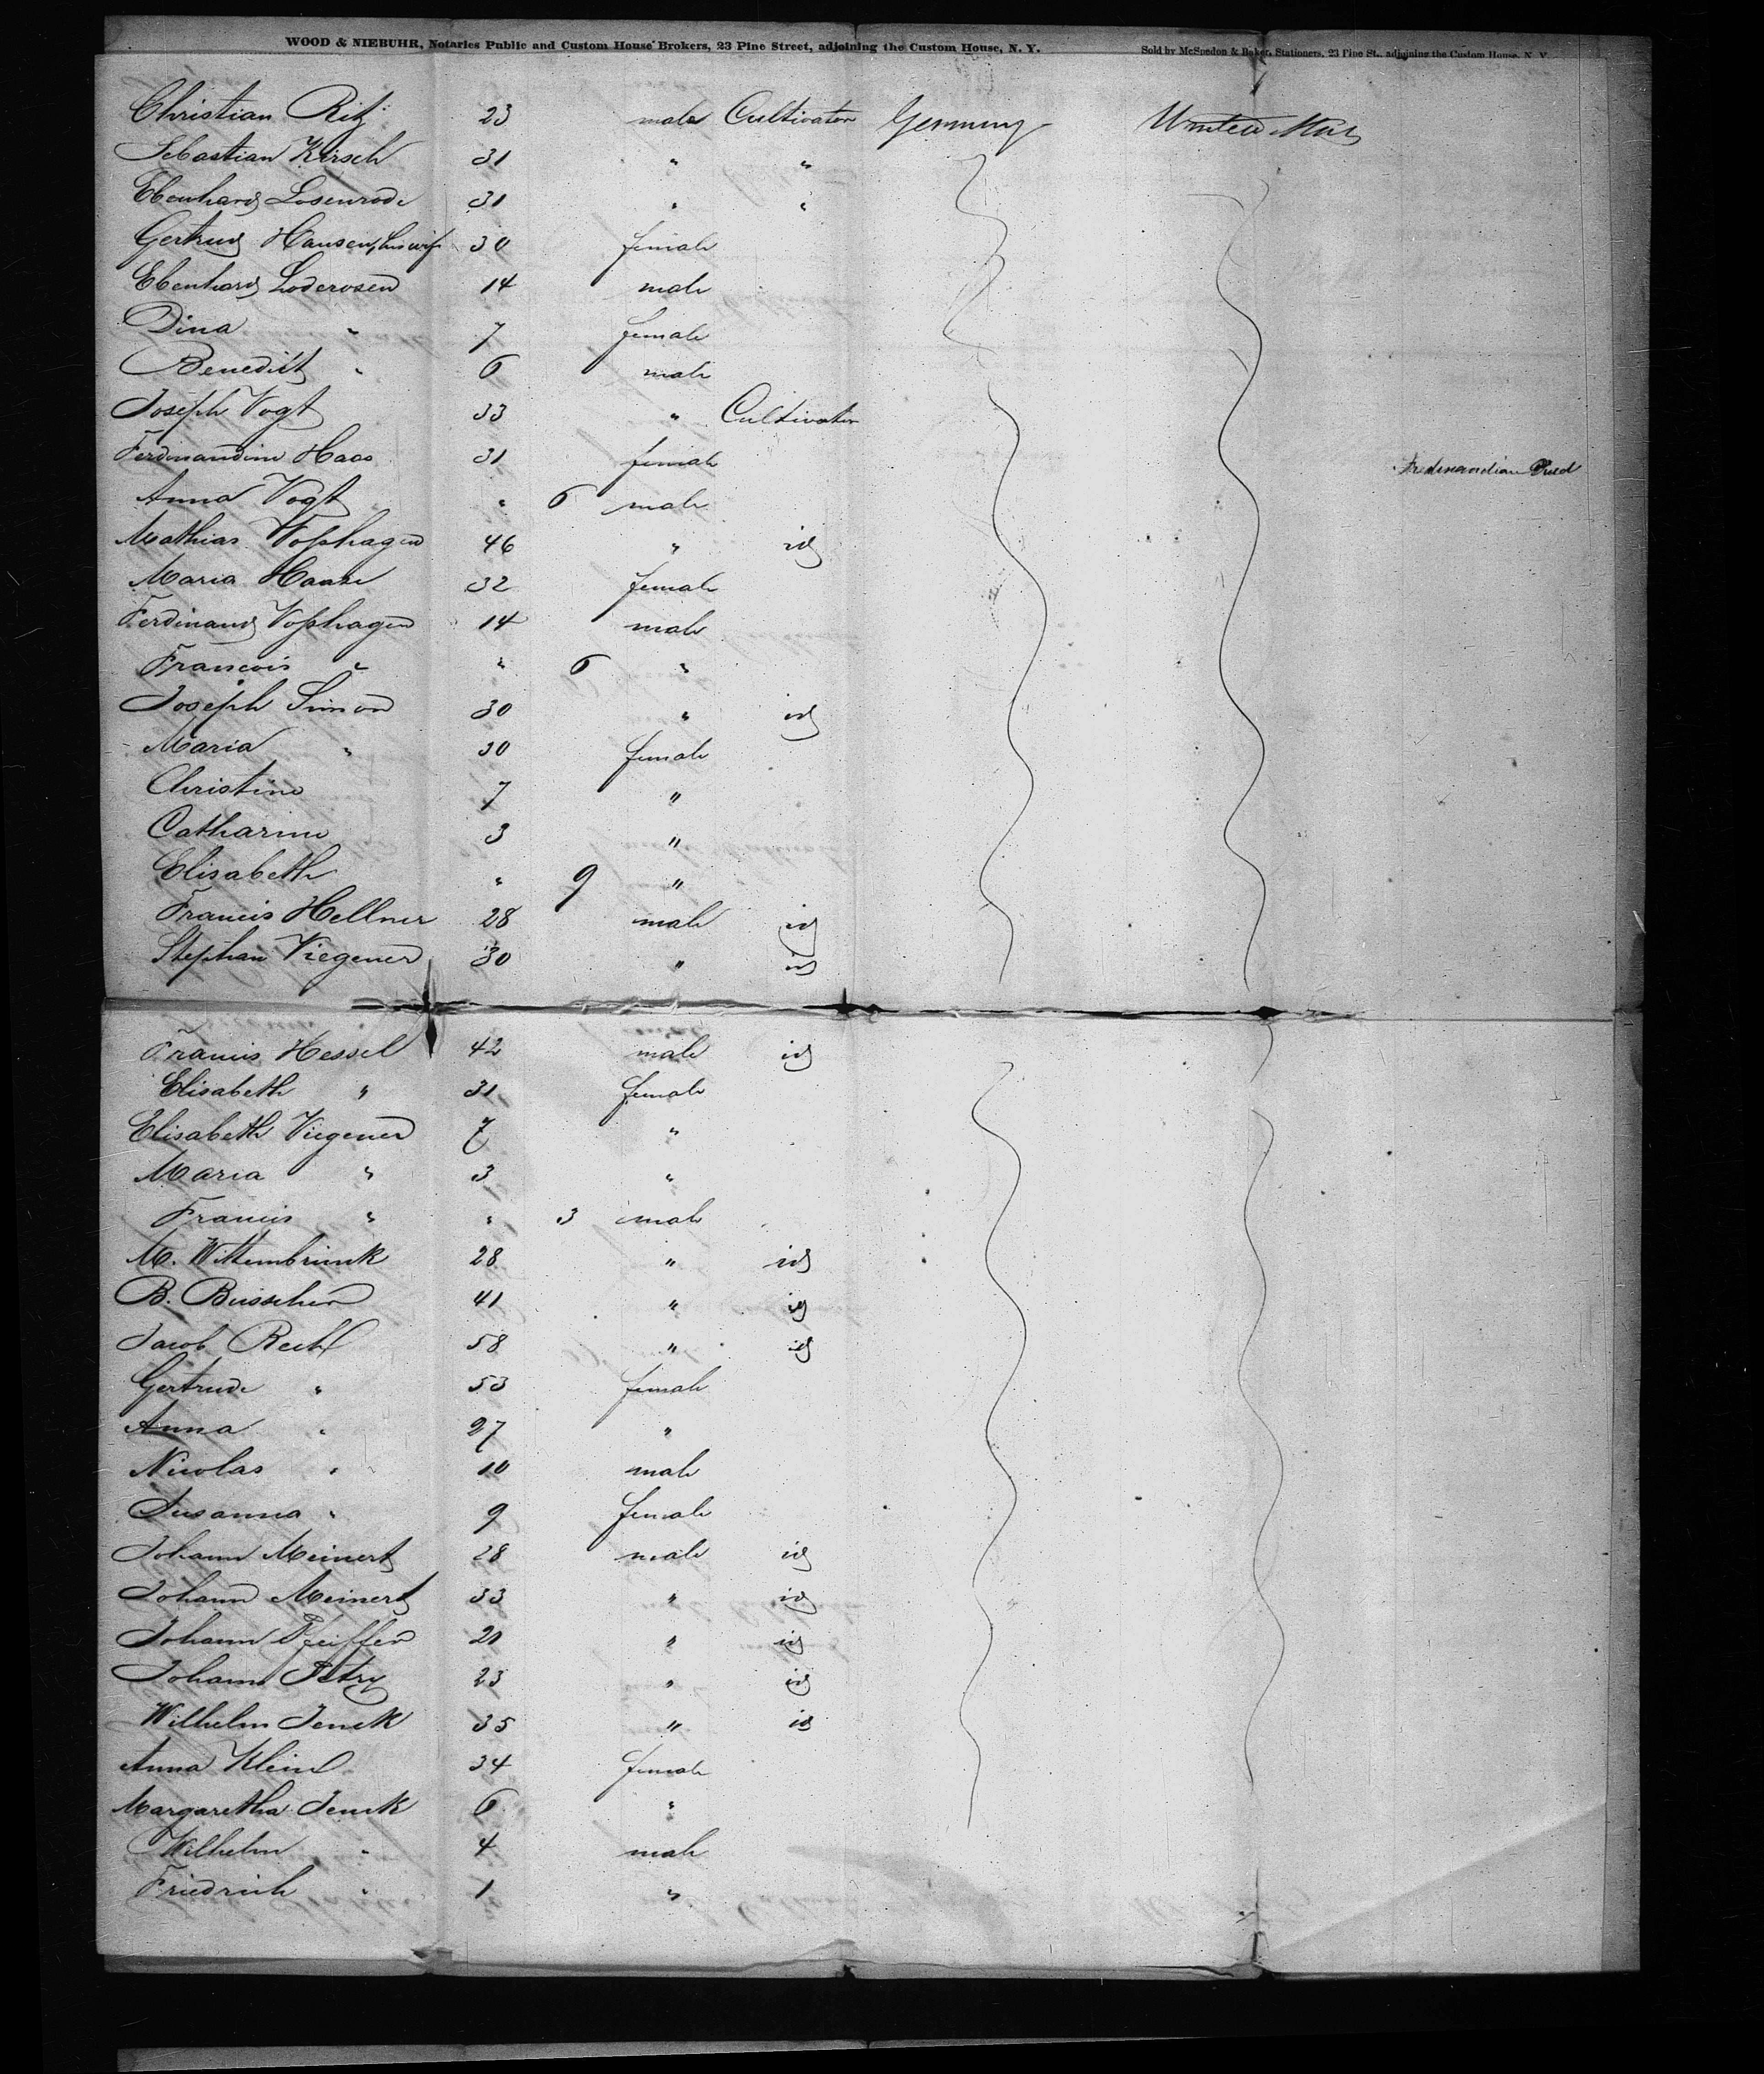 WOOD & NIEBUHR, Notaries Public and Custom House Brokers, 23 Pine Street, adjoining the Custom House, N. Y. Sold by McSpedon & Baker, Stationers, 23 Pine St., adjoining the Custom House, N. Y.
Christian Ritz 23 male Cultivator Germany United Stat
Sebastian Kirsch 31 " "
Ebenhard Losenrode 31 " "
Gertrud Hansen, his wife 30 female
Ebenhard Loderosen 14 male
Dina " 7 female
Benedikt " 6 male
Joseph Vogt 33 " Cultivator
Ferdinandine Haas 31 female Died
Anna Vogt " 6 male
Mathias Voßhagen 46 " id
Maria Haase 32 female
Ferdinand Voßhagen 14 male
Francois " " 6 "
Joseph Simon 30 " id
Maria " 30 female
Christine 7 "
Catharine 3 "
Elisabeth " 9 "
Francis Hellner 28 male id
Stephan Viegener 30 " id
Francis Hessel 42 male id
Elisabeth " 31 female
Elisabeth Viegener 7 "
Maria " 3 "
Francis " " 3 male
M. Wittembrink 28 " id
B. Busscher 41 " id
Jacob Rech 58 " id
Gertrude " 53 female
Anna " 27 "
Nicolas " 10 male
Susanna " 9 female
Johann Meinert 28 male id
Johann Meinert 33 " id
Johann Pfeiffer 21 " id
Johann Petry 23 " id
Wilhelm Jenck 35 " id
Anna Klein 34 female
Margaretha Jenck 6 "
Wilhelm " 4 male
Friedrich " 1 "